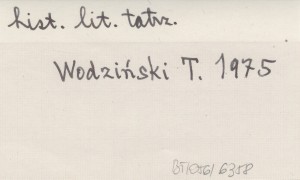 hist. lit. tatrz.
Wodziński T. 1975
BT/056/6358